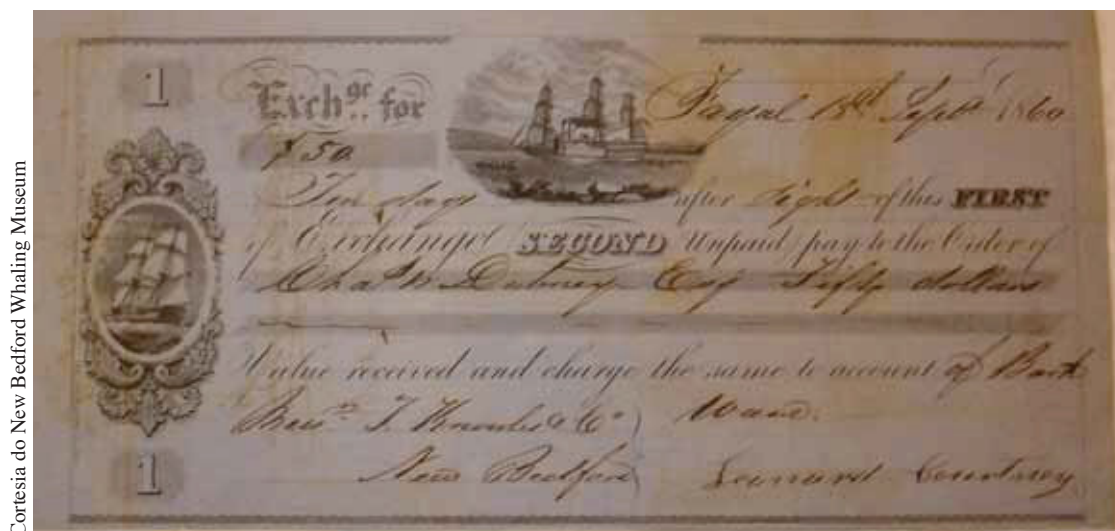 Cortesia do New Bedford Whaling Museum
1
Exchge.. for
Fayal 18th Sept 1860
$50
Ten days after sight of this FIRST
of Exchange SECOND Unpaid pay to the Order of
Chas W Dabney Esq Fifty dollars
Value received and charge the same to account of Bark
Thos. Knowles & Co
New Bedford Leonard Courtney
1